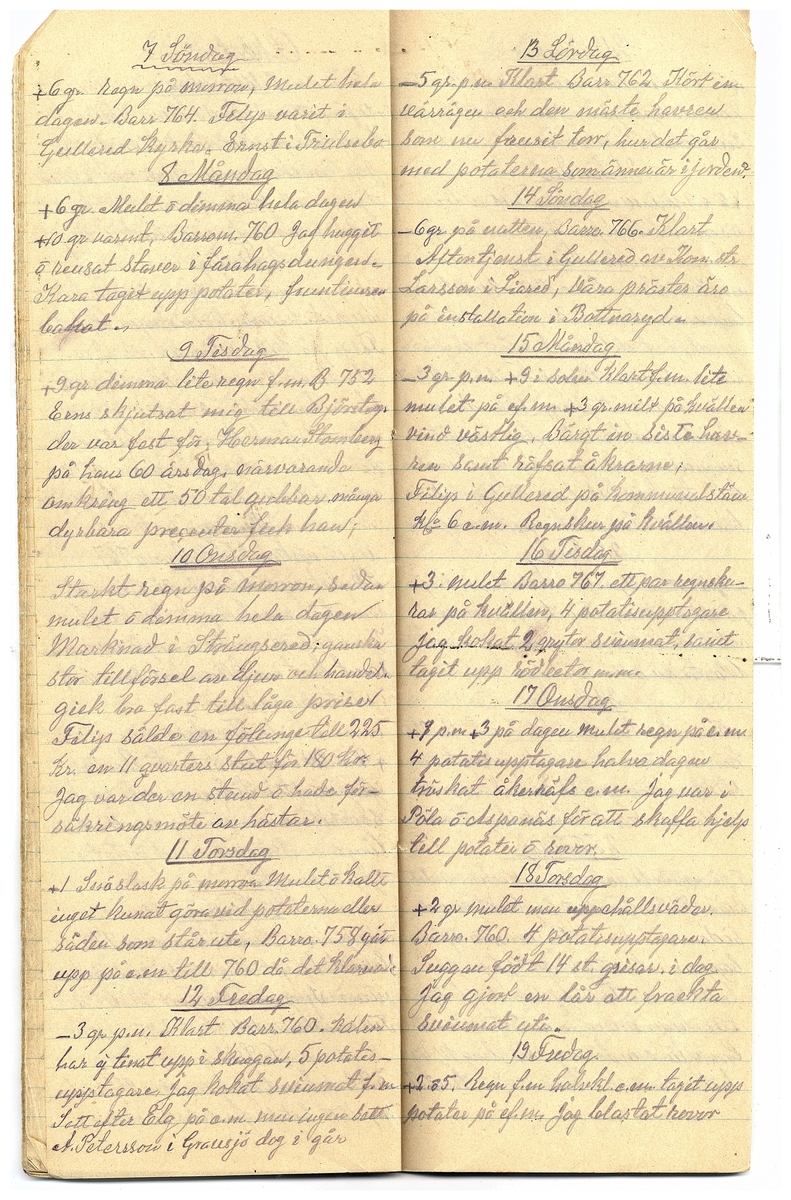 7 Söndag
+6 gr. Regn på morron, Mulet hela
dagen. Barr 764. Filip varit i
Gullered Kyrka. Ernst i Trulsebo
8 Måndag
+6 gr. Mulet o dimma hela dagen
+10 gr varmt, Barrom. 760 Jag huggit
o rensat staver i fårahagsdungen.
Kara tagit upp potater, fruntimren
bakat.
9 Tisdag
+9 gr dimma lite regn f.m. B 752
Erns skjutsat mig till
der var fest för, Herman Stomberg
på hans 60 årsdag, närvarande
omkring ett 50 tal gubbar många
dyrbara precenter feck han;
10 Onsdag
Starkt regn på morron, sedan
mulet o dimma hela dagen
Marknad i Strängsered; ganska
stor tillförsel av djur och handeln
gick bra fast till låga priser
Filip sålde en fölunge till 225
Kr. en 11 qvarters stut för 180 Kr.
Jag var der en stund o hade för-
säkringsmöte av hästar.
11 Torsdag
+1 Snöslask på morron Mulet o kallt
inget kunat göra vid potaterna eller
säden som står ute, Barro. 758 gått
upp på e.m till 760 då det klarnade
12 Fredag
-3 gr p.m. Klart Barr. 760. kälen
har ej tinat upp i skuggan, 5 potatis-
upptagare, jag kokat svinmat f.m
Sett efter Elg på e.m men ingen sett
A. Petersson i Gransjö dog i går
13 Lördag
-5 gr. p.m Klart Barr 762. Kört in
vårrågen och den mästa havren
som nu frusit torr, hur det går
med potaterna som ännu är i jorden?
14 Söndag
-6 gr på natten, Barro. 766. Klart
Aftontjenst i Gullered av Kom. str
Larsson i Liared, våra präster äro
på installation i Bottnaryd.
15 Måndag
-3 gr. p.m. +9 i solen Klart f.m. lite
mulet på ef.m. +3 gr. milt på kvällen
vind västlig, Bärgt in sista hav-
ren samt räfsat åkrarne;
Filip i Gullered på kommunalstäm
kl. 6 e.m. Regnskur på kvällen.
16 Tisdag
+3. mulet Barro 767. ett par regnsku-
rar på kvällen, 4 potatisupptagare
jag kokat 2 grytor svinmat, samt
tagit upp rödbetor m.m.
17 Onsdag
p.m +3 på dagen mulet regn på e.m
4 potatisupptagare halva dagen
tröskat åkerräfs e.m. Jag var i
Pöla o Aspanäs för att skaffa hjelp
till potater o rovor
18 Torsdag
+2 gr mulet men uppehållsväder.
Barro. 760. 4 potatisupptagare.
Suggan födt 14 st. grisar i dag
Jag gjort en lår att frackta
svinmat uti.
19 Fredag.
Regn f.m halvkl. e.m taget upp
potater på ef.m. jag blastat rovor